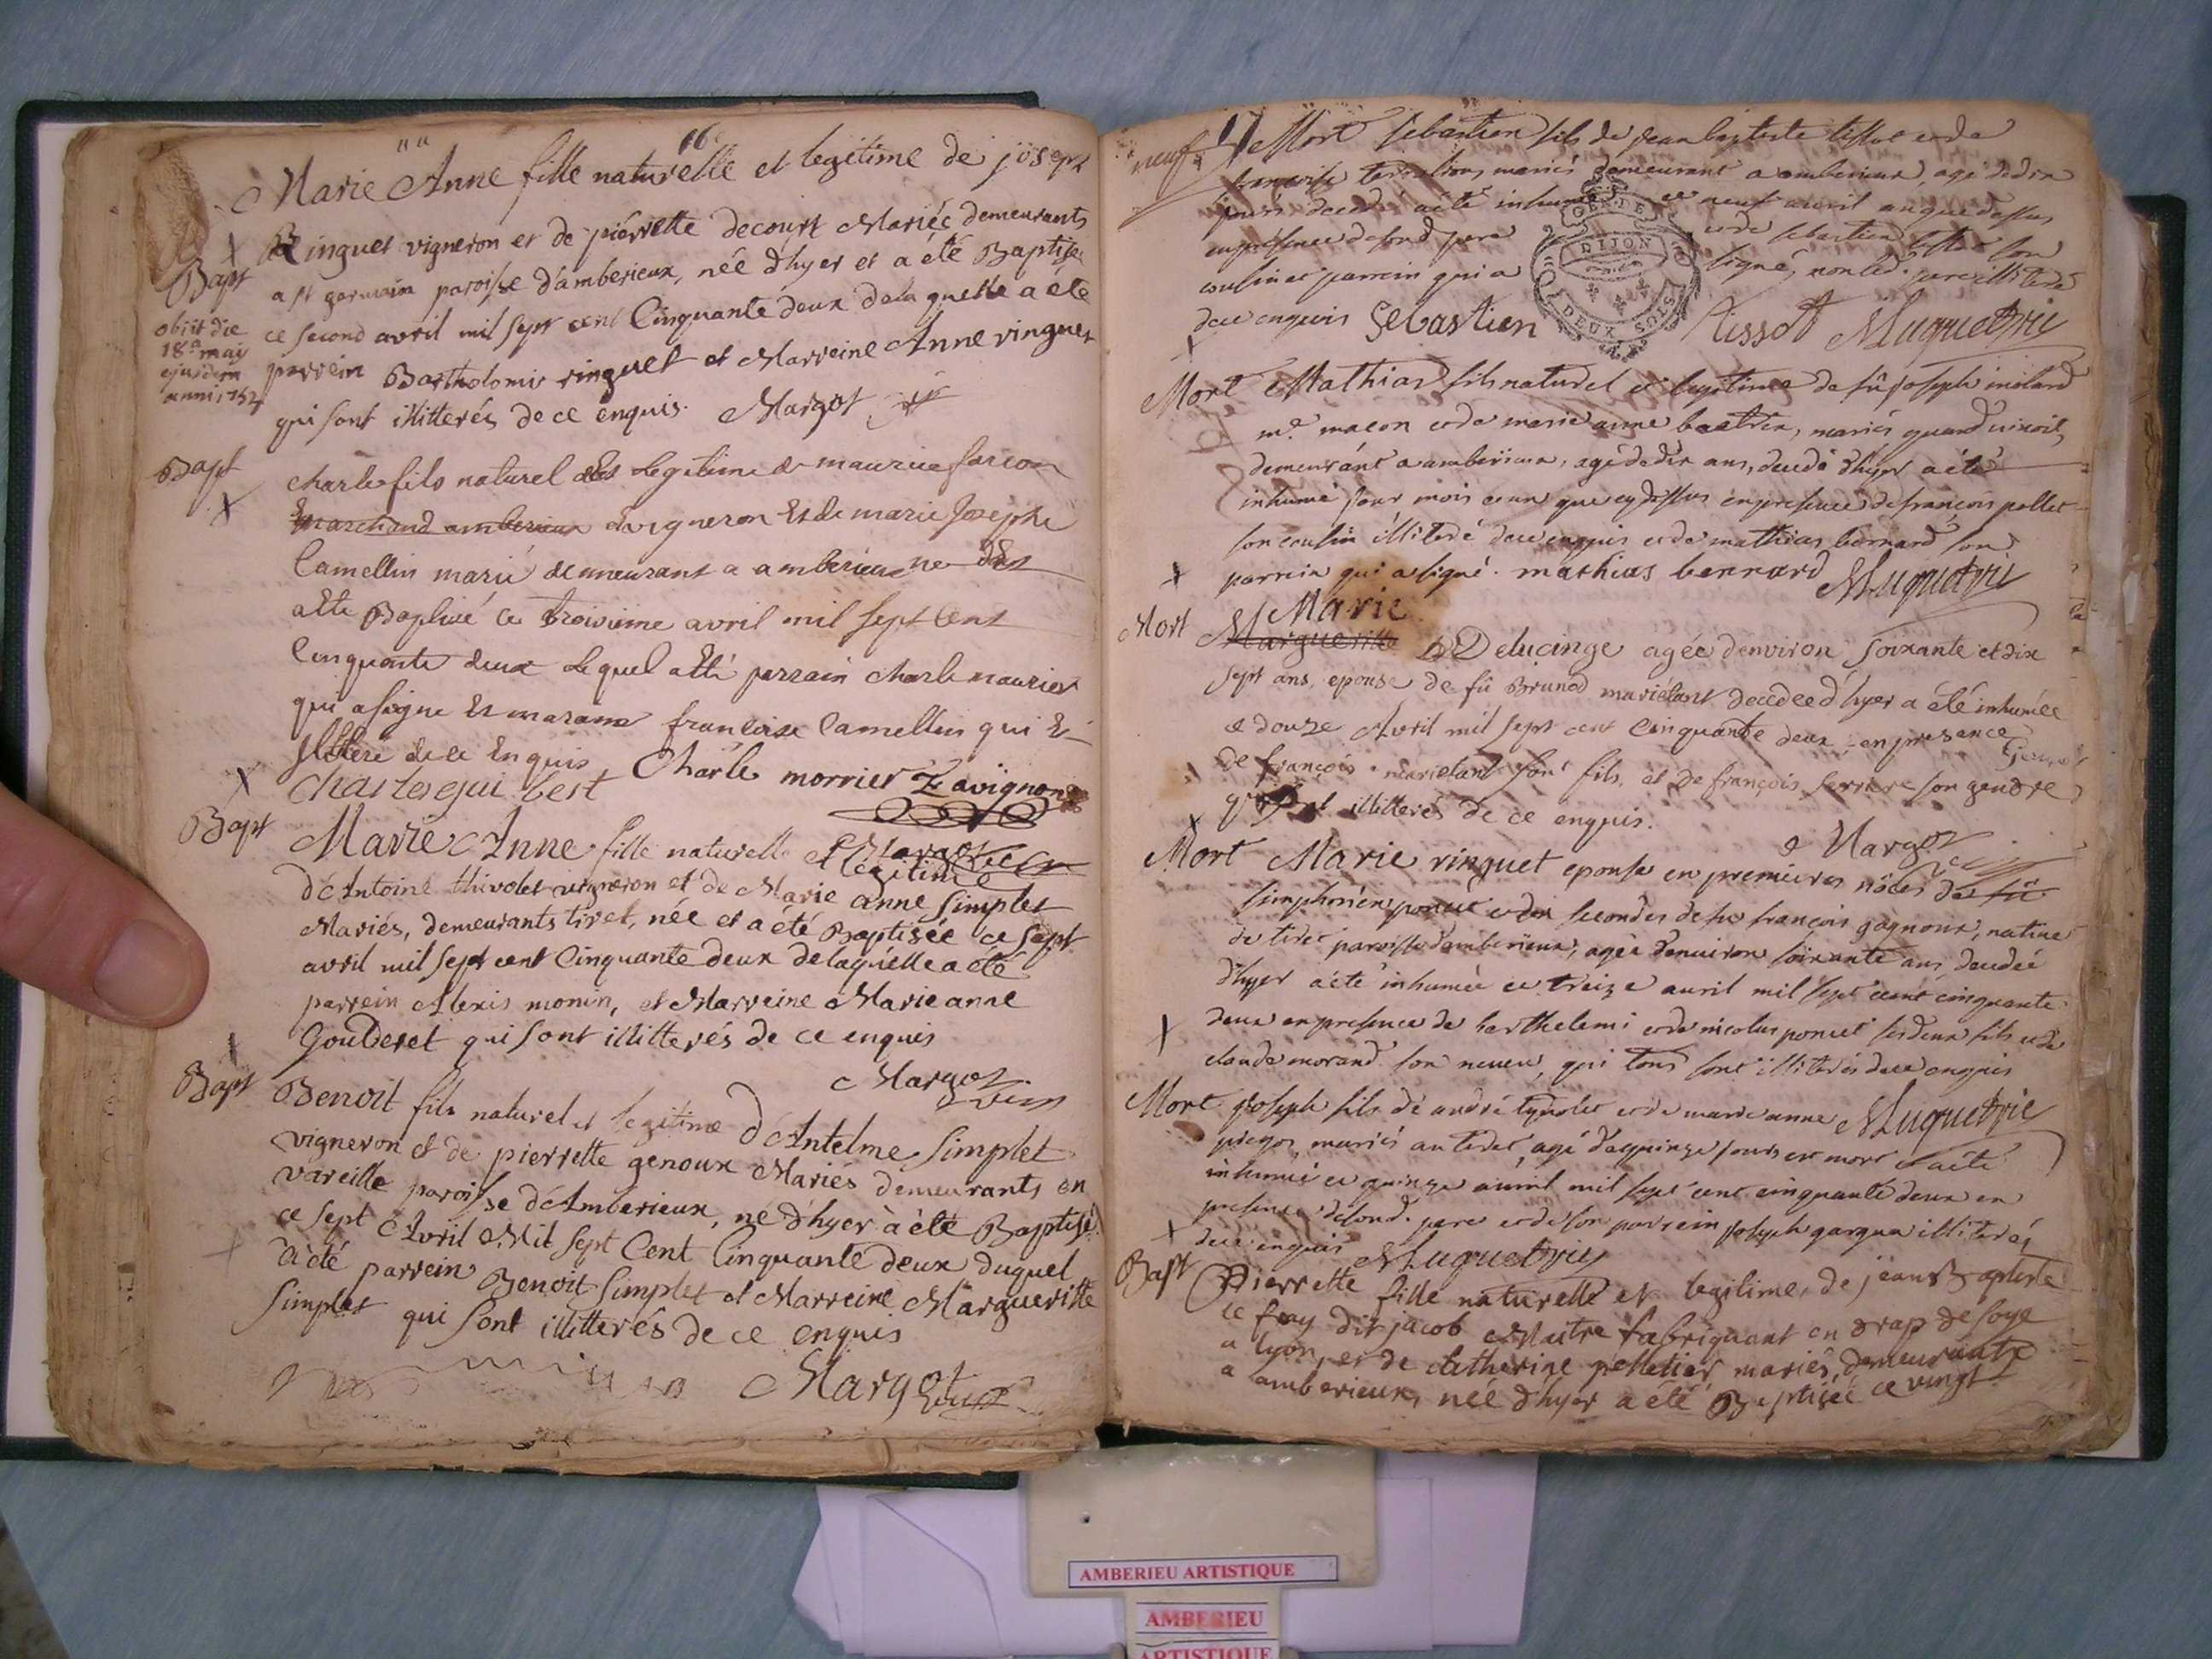 16
Marie Anne fille naturelle et legitime de joseph
Ringuet vigneron et de pierrette decourt Mariés demeurants
Bapt
a st germain paroisse d'amberieux, née d'hyer et a été Baptisée
obiit die
18a maij
ejusdem
anni 1752
ce second avril mil sept cent Cinquante deux de la quelle a été
parrein Bartholomir ringuet et Marreine Anne ringuet
qui sont illitterés de ce enquis. Margot
Bapt
charle fils naturel et Legitime de maurice farcon
marchand amberieux vigneron Et de marie Josephe
Camellin marié demeurant a amberieux ne
a Ete Baptisé ce troisieme avril mil sept Cent
Cinquante deux Le quel a Eté parrain charle maurier
qui a signe Et maraine francoise Camellin qui E
Illitere de ce Enquis
charles qui best Charle morrier Zavignon
Bapt
Marie Anne fille naturelle et legitime
d'Antoine thivolet vigneron et de Marie anne Simplet
Mariés, demeurants tiret, née et a été Baptisée ce sept
avril mil sept cent Cinquante deux de laquelle a été
parrein Alexis monin, et Marreine Marie anne
Goulderet qui sont illitterés de ce enquis
Margot
Bapt
Benoit fils naturel et legitime d'Antelme Simplet
vigneron et de pierrette genoux Mariés demeurants en
vareille paroisse d'Amberieux, né d'hyer à été Baptisé
ce sept Avril Mil Sept Cent Cinquante deux duquel
à été parrein Benoit Simplet et Marreine Margueritte
Simplet qui sont illitterés de ce enquis
Margot
neuf
Mort Sebastien fils de jean baptiste tissot et de
françoise mariés demeurant a amberieux, agé de dix
jours decedé a été inhumé ce neuf avril an que dessus
en presence de sond. pere et de sebastien tissot son
cousin et parrein qui a signé, non led. pere illiteré
de ce enquis Sebastien Tissot Muguet
GEN. DE
DIJON
DEUX SOLS
Mort Mathias fils naturel et legitime de fû joseph inolard
me. macon et de marie anne mariés quand vivoit,
demeurant a amberieux, agé de dix ans, decedé d'hyer a été
inhumé jour mois et an que cy dessus en presence de françois pollet
son cousin illiteré de ce enquis et de mathias bernard son
parrein qui a signé. mathias bernard Muguet
Mort Marie
Margueritte Delucinge agée d'environ soixante et dix
sept ans, epouse de fû Brunod mariétant decedée d'hyer a été inhumée
ce douze Avril mil sept cent Cinquante deux, en presence
de françois marietant son fils, et de françois ferriere son gendre
qui sont illitterés de ce enquis.
Margot
Mort Marie ringuet epouse en premieres nôces de fû
simphorien poncet et en secondes de fu françois gagnoux, native
de tiret paroisse d'amberieux, agée d'environ soixante ans decedée
d'hyer a été inhumée ce treize avril mil sept cent cinquante
deux en presence de barthelemi et de nicolas poncet ses deux fils et de
claude morand son neveu, qui tous sont illiterés de ce enquis
Muguet
Mort joseph fils de andré tyvolet et de marie anne
mariés au tiret, agé de quinze jours est mort et a été
inhumé ce quinze avril mil sept cent cinquante deux en
presence de sond. pere et de son parrein joseph illiterés
de ce enquis Muguet
Bapt Pierrette fille naturelle et legitime, de jean Baptiste
le fay dit jacob Maître fabriquant en drap de soye
a lyon, et de Catherine pelletier mariés, demeurants
a amberieux, née d'hyer a été Baptisée ce vingt
AMBERIEU ARTISTIQUE
AMBERIEU
ARTISTIQUE